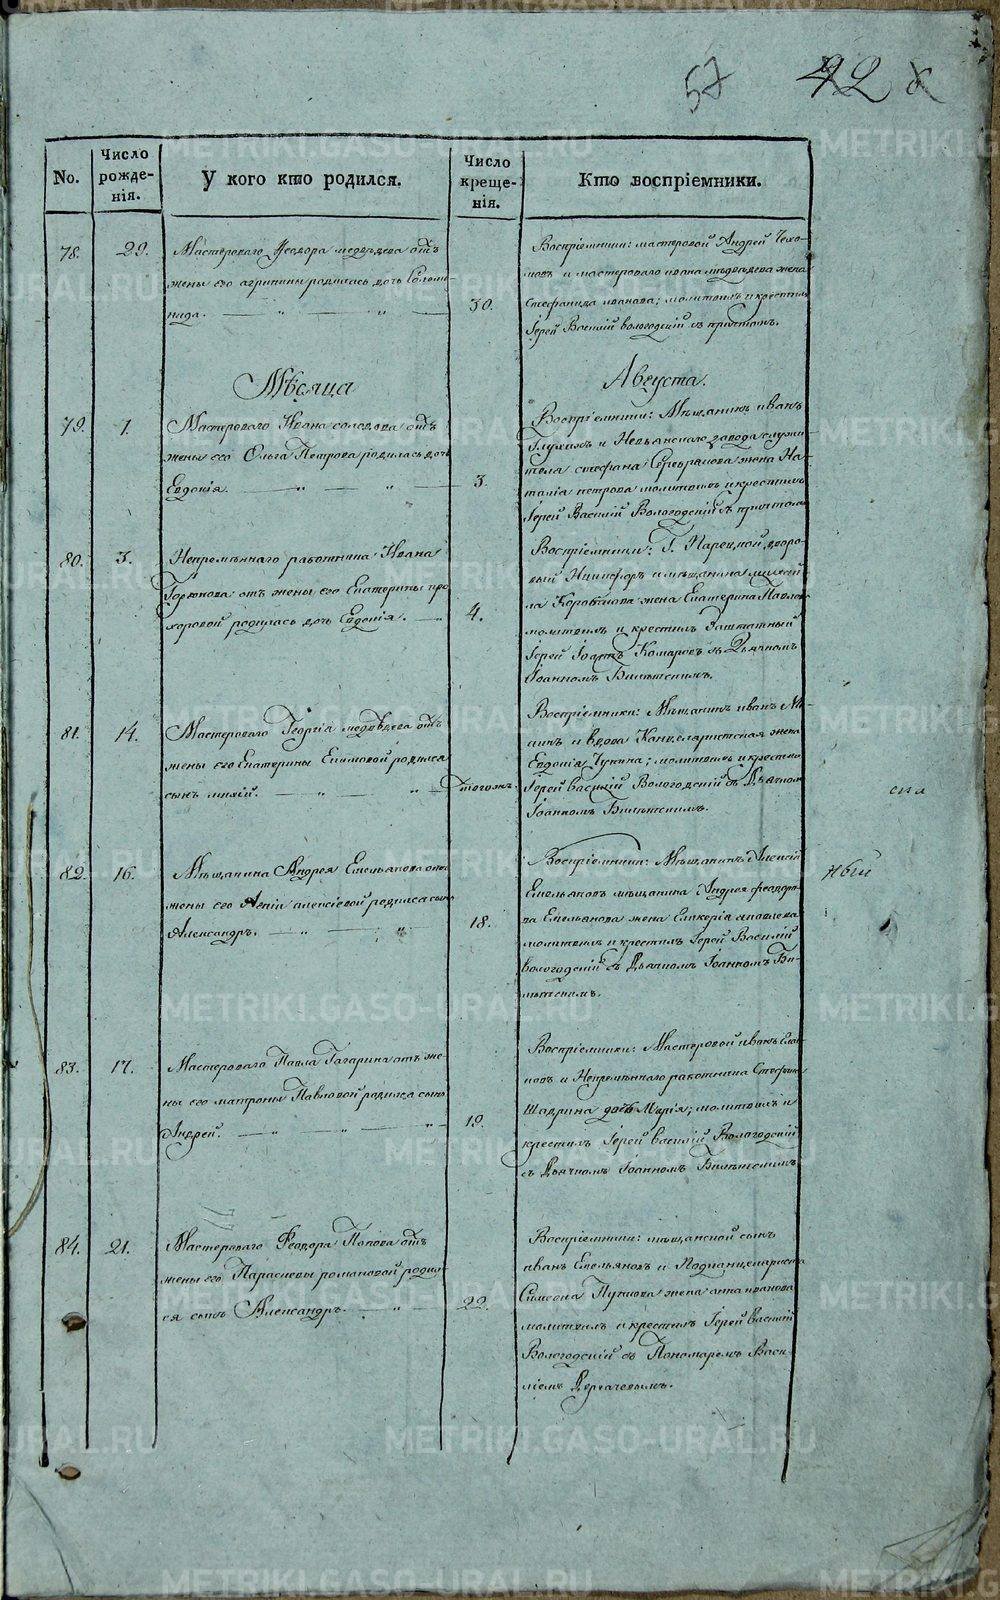 57 42
No.
Число рожде-нія.
У кого кто родился.
Число креще-нія.
Кто воспріемники.
78. 29.
Мастероваго Ѳеодора медвѣдева отъ
жены его агрипины родилась дочь Соломо
нида.
30.
Воспріемники: мастеровой Андрей
и мастероваго ивана медвѣдева жена
Стефанида иванова; молитвилъ и крестилъ
Іерей Василій вологодскій съ причтомъ.
Мѣсяца Августа.
79. 1.
Мастероваго Ивана соловова отъ
жены его Ольга Петрова родилась дочь
Евдокія.
3.
Воспріемники: Мѣщанинъ иванъ
Глухихъ и Невьянскаго завода служи
теля стефана Серебрякова жена На
талія петрова молитвилъ и крестилъ
Іерей Василій Вологодскій съ причтомъ
80. 3.
Непремѣннаго работника Ивана
Горюнова отъ жены его Екатерины про
хоровой родилась дочь Евдокія.
4.
Воспріемники: Г. дворо
вый Никифоръ и мѣщанина михай
ла Коробкова жена Екатерина Павлова
молитвилъ и крестилъ Заштатный
Іерей Іоаннъ Комаровъ съ Дьячкомъ
Іоанномъ
81. 14.
Мастероваго Георгія медвѣдева отъ
жены его Екатерины Екимовой родился
сынъ
тогожъ
Воспріемники: Мѣщанинъ иванъ
и вдова Канцеляристская жена
Евдокія Чукина; молитвилъ и крестилъ
Іерей василій Вологодскій съ Дьячкомъ
Іоанномъ
82. 16.
Мѣщанина Андрея Емельянова отъ
жены его алексіевой родился сынъ
Александръ.
18.
Воспріемники: Мѣщанинъ Алексій
Емельяновъ мѣщанина Андрея феодоро
ва Емельянова жена яковлева
молитвилъ и крестилъ Іерей Василій
вологодскій съ Дьячкомъ Іоанномъ
83. 17.
Мастероваго Павла Гагарина отъ же-
ны его матроны Павловой родился сынъ
Андрей.
19.
Воспріемники: Мастеровой иванъ
и Непремѣннаго работника Стефана
Шадрина дочь Марія; молитвилъ и
крестилъ Іерей василій Вологодскій
съ Дьячкомъ Іоанномъ
84. 21.
Мастероваго Феодора Попова отъ
жены его Парасковы романовой родил-
ся сынъ Александръ.
22.
Воспріемники: мѣщанской сынъ
иванъ Емельяновъ и Подканцеляриста
Симеона Пупкова жена анна иванова
молитвилъ и крестилъ Іерей Василій
Вологодскій съ Пономаремъ Васи-
ліемъ Дерягевымъ.
METRIKI.GASO-URAL.RU